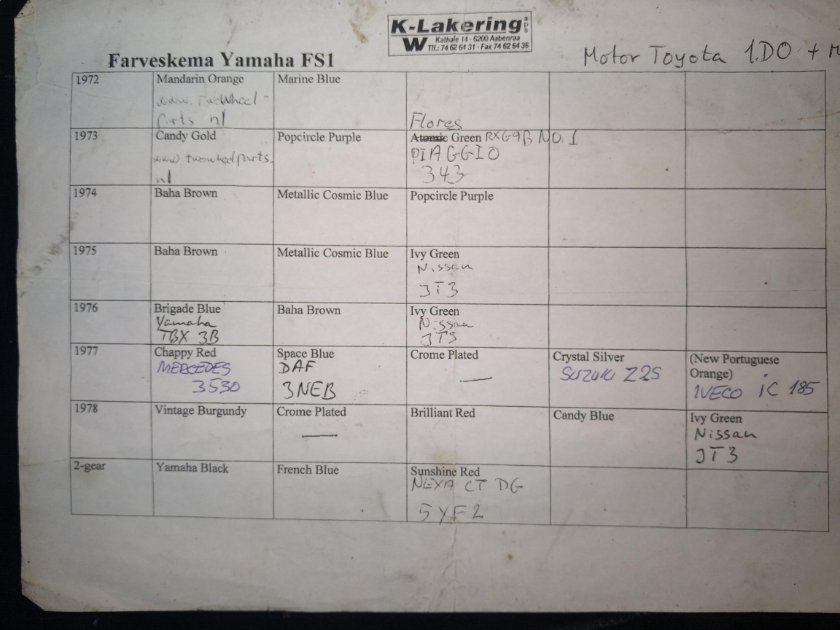 K-Lakering aps
W Kathale 14 - 6200 Aabenraa
Tlf.: 74 62 64 31 - Fax 74 62 64 36
Farveskema Yamaha FS1
Motor Toyota 1.DO +
1972 Mandarin Orange Marine Blue
parts nl Flores
1973 Candy Gold Popcircle Purple Atomic Green RXG9B NO.1
www twowheelparts. PIAGGIO
nl 343
1974 Baha Brown Metallic Cosmic Blue Popcircle Purple
1975 Baha Brown Metallic Cosmic Blue Ivy Green
Nissan
JT3
1976 Brigade Blue Baha Brown Ivy Green
Yamaha Nissan
TBX 3B JT3
1977 Chappy Red Space Blue Crome Plated Crystal Silver (New Portuguese
Orange)
MERCEDES DAF — SUZUKI Z2S IVECO IC 185
3530 3NEB
1978 Vintage Burgundy Crome Plated Brilliant Red Candy Blue Ivy Green
— Nissan
JT3
2-gear Yamaha Black French Blue Sunshine Red
NEXA CT DG
5YF2